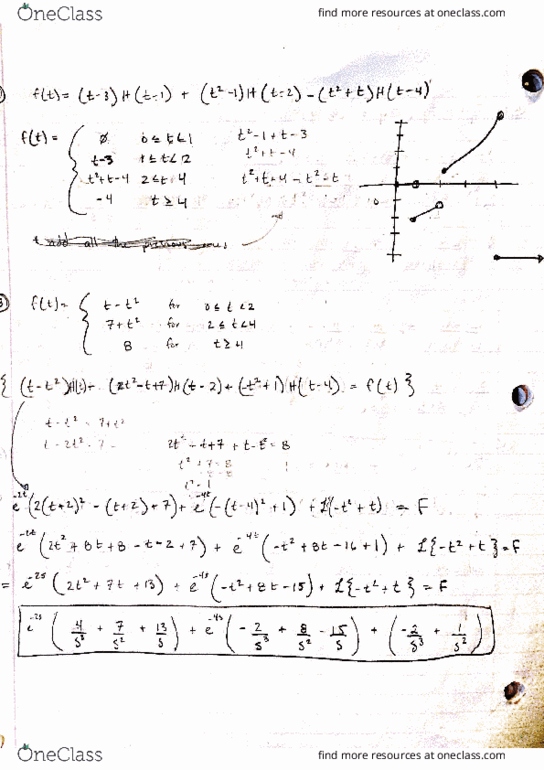 OneClass
find more resources at oneclass.com
f(t) = (t-3)H(t-1) + (t²-1)H(t-2) - (t²+t)H(t-4)
f(t) =
0 0≤t<1
t²-1+t-3
t-3 1≤t<2
t²+t-4
t²+t-4 2≤t<4
-4 t≥4
add all the previous
f(t) =
t-t² for 0≤t<2
7+t² for 2≤t<4
8 for t≥4
(t-t²)H(t) + (2t²-t+7)H(t-2) + (t²+1)H(t-4) = f(t) }
t-t² = 7+t²
2t²-t+7+t-t² = 8
t²+7=8
e^-2t (2(t+2)² - (t+2)+7) + e^-4t (-(t-4)²+1) + ℒ(-t²+t) = F
e^-2t (2t²+8t+8-t-2+7) + e^-4t (-t²+8t-16+1) + ℒ{-t²+t} = F
= e^-2s (2t²+7t+13) + e^-4s (-t²+8t-15) + ℒ{-t²+t} = F
e^-2s (4/s³ + 7/s² + 13/s) + e^-4s (-2/s³ + 8/s² - 15/s) + (-2/s³ + 1/s²)
OneClass
find more resources at oneclass.com